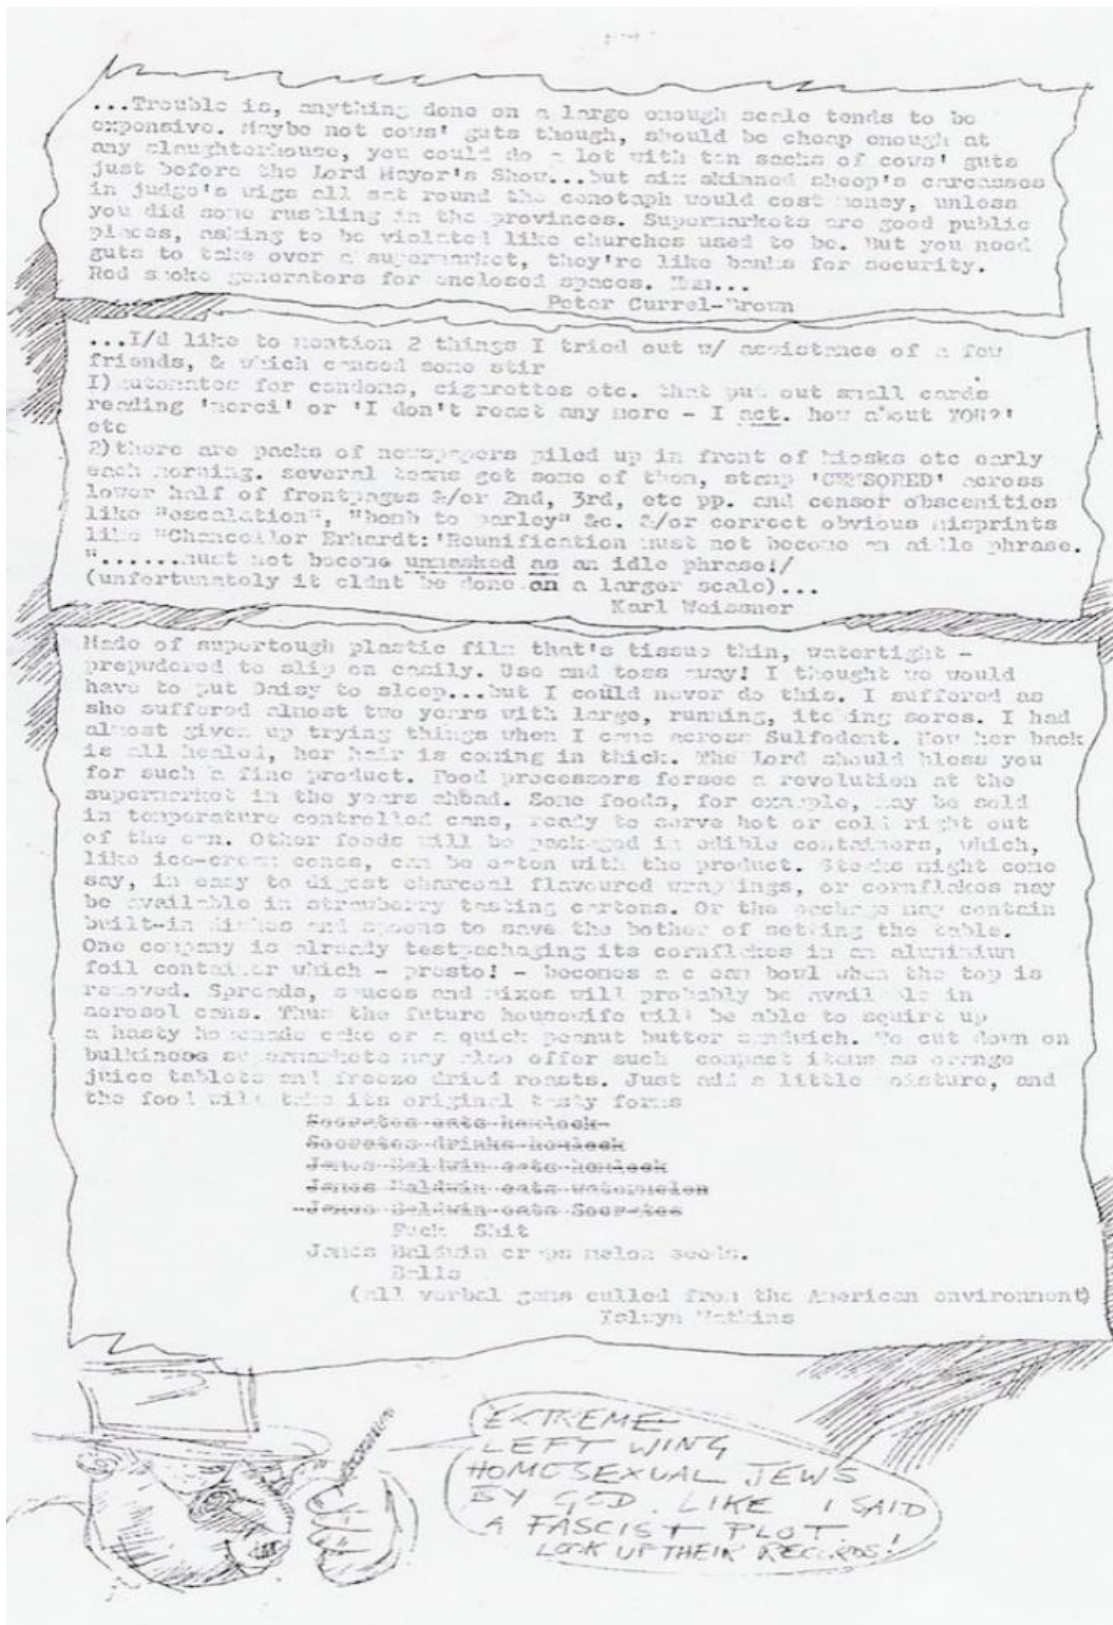 ...Trouble is, anything done on a large enough scale tends to be
expensive. Maybe not cows' guts though, should be cheap enough at
any slaughterhouse, you could do a lot with ten sacks of cows' guts
just before the Lord Mayor's Show...but six skinned sheep's carcasses
in judge's wigs all sat round the cenotaph would cost money, unless
you did some rustling in the provinces. Supermarkets are good public
places, asking to be violated like churches used to be. But you need
guts to take over a supermarket, they're like banks for security.
Red smoke generators for enclosed spaces. Hmm...
Peter Currel-Brown
...I/d like to mention 2 things I tried out w/ assistance of a few
friends, & which caused some stir
I) automates for condoms, cigarettes etc. that put out small cards
reading 'merci' or 'I don't react any more - I act. how about YOU?'
etc
2)there are packs of newspapers piled up in front of kiosks etc early
each morning. several teams get some of them, stamp 'CENSORED' across
lower half of frontpages &/or 2nd, 3rd, etc pp. and censor obscenities
like "escalation", "bomb to parley" &c. &/or correct obvious misprints
like "Chancellor Erhardt: 'Reunification must not become an aidle phrase.
"......must not become unmasked as an idle phrase!/
(unfortunately it cldnt be done on a larger scale)...
Karl Weissner
Made of supertough plastic film that's tissue thin, watertight -
prepwdered to slip on easily. Use and toss away! I thought we would
have to put Daisy to sleep...but I could never do this. I suffered as
she suffered almost two years with large, running, itching sores. I had
almost given up trying things when I came across Sulfodent. Now her back
is all healed, her hair is coming in thick. The Lord should bless you
for such a fine product. Food processors forsee a revolution at the
supermarket in the years ahead. Some foods, for example, may be sold
in temperature controlled cans, ready to serve hot or cold right out
of the can. Other foods will be packaged in edible containers, which,
like ice-cream cones, can be eaten with the product. Steaks might come
say, in easy to digest charcoal flavoured wrappings, or cornflakes may
be available in strawberry tasting cartons. Or the package may contain
built-in dishes and spoons to save the bother of setting the table.
One company is already testpackaging its cornflakes in an aluminium
foil container which - presto! - becomes a c ean bowl when the top is
removed. Spreads, sauces and mixes will probably be available in
aerosol cans. Thus the future housewife will be able to squirt up
a hasty homemade cake or a quick peanut butter sandwich. To cut down on
bulkiness supermarkets may also offer such compact items as orange
juice tablets and freeze dried roasts. Just add a little moisture, and
the food will take its original tasty forms
Socrates eats hemlock
Socrates drinks hemlock
James Baldwin eats hemlock
James Baldwin eats watermelon
James Baldwin eats Socrates
Fuck Shit
James Baldwin craps melon seeds.
Balls
(all verbal gems culled from the American environment)
Tolwyn Watkins
EXTREME
LEFT WING
HOMOSEXUAL JEWS
BY GOD. LIKE I SAID
A FASCIST PLOT.
LOOK UP THEIR RECORDS!